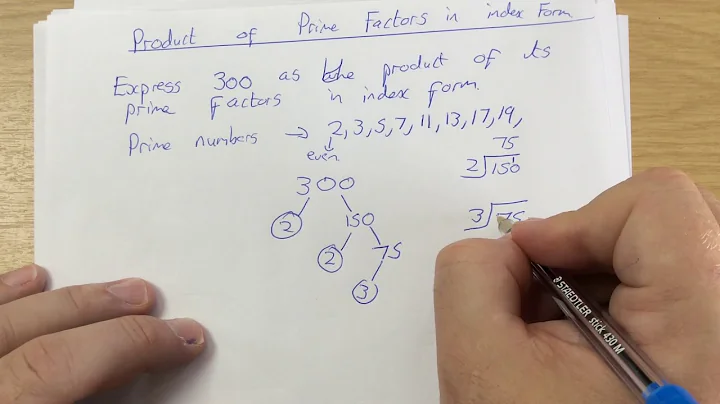 Product of Prime Factors in index Form
Express 300 as the product of its
prime factors in index form.
Prime numbers → 2, 3, 5, 7, 11, 13, 17, 19,
even
75
2 150
300
2 150
3 75
2 75
3
STAEDTLER stick 430 M